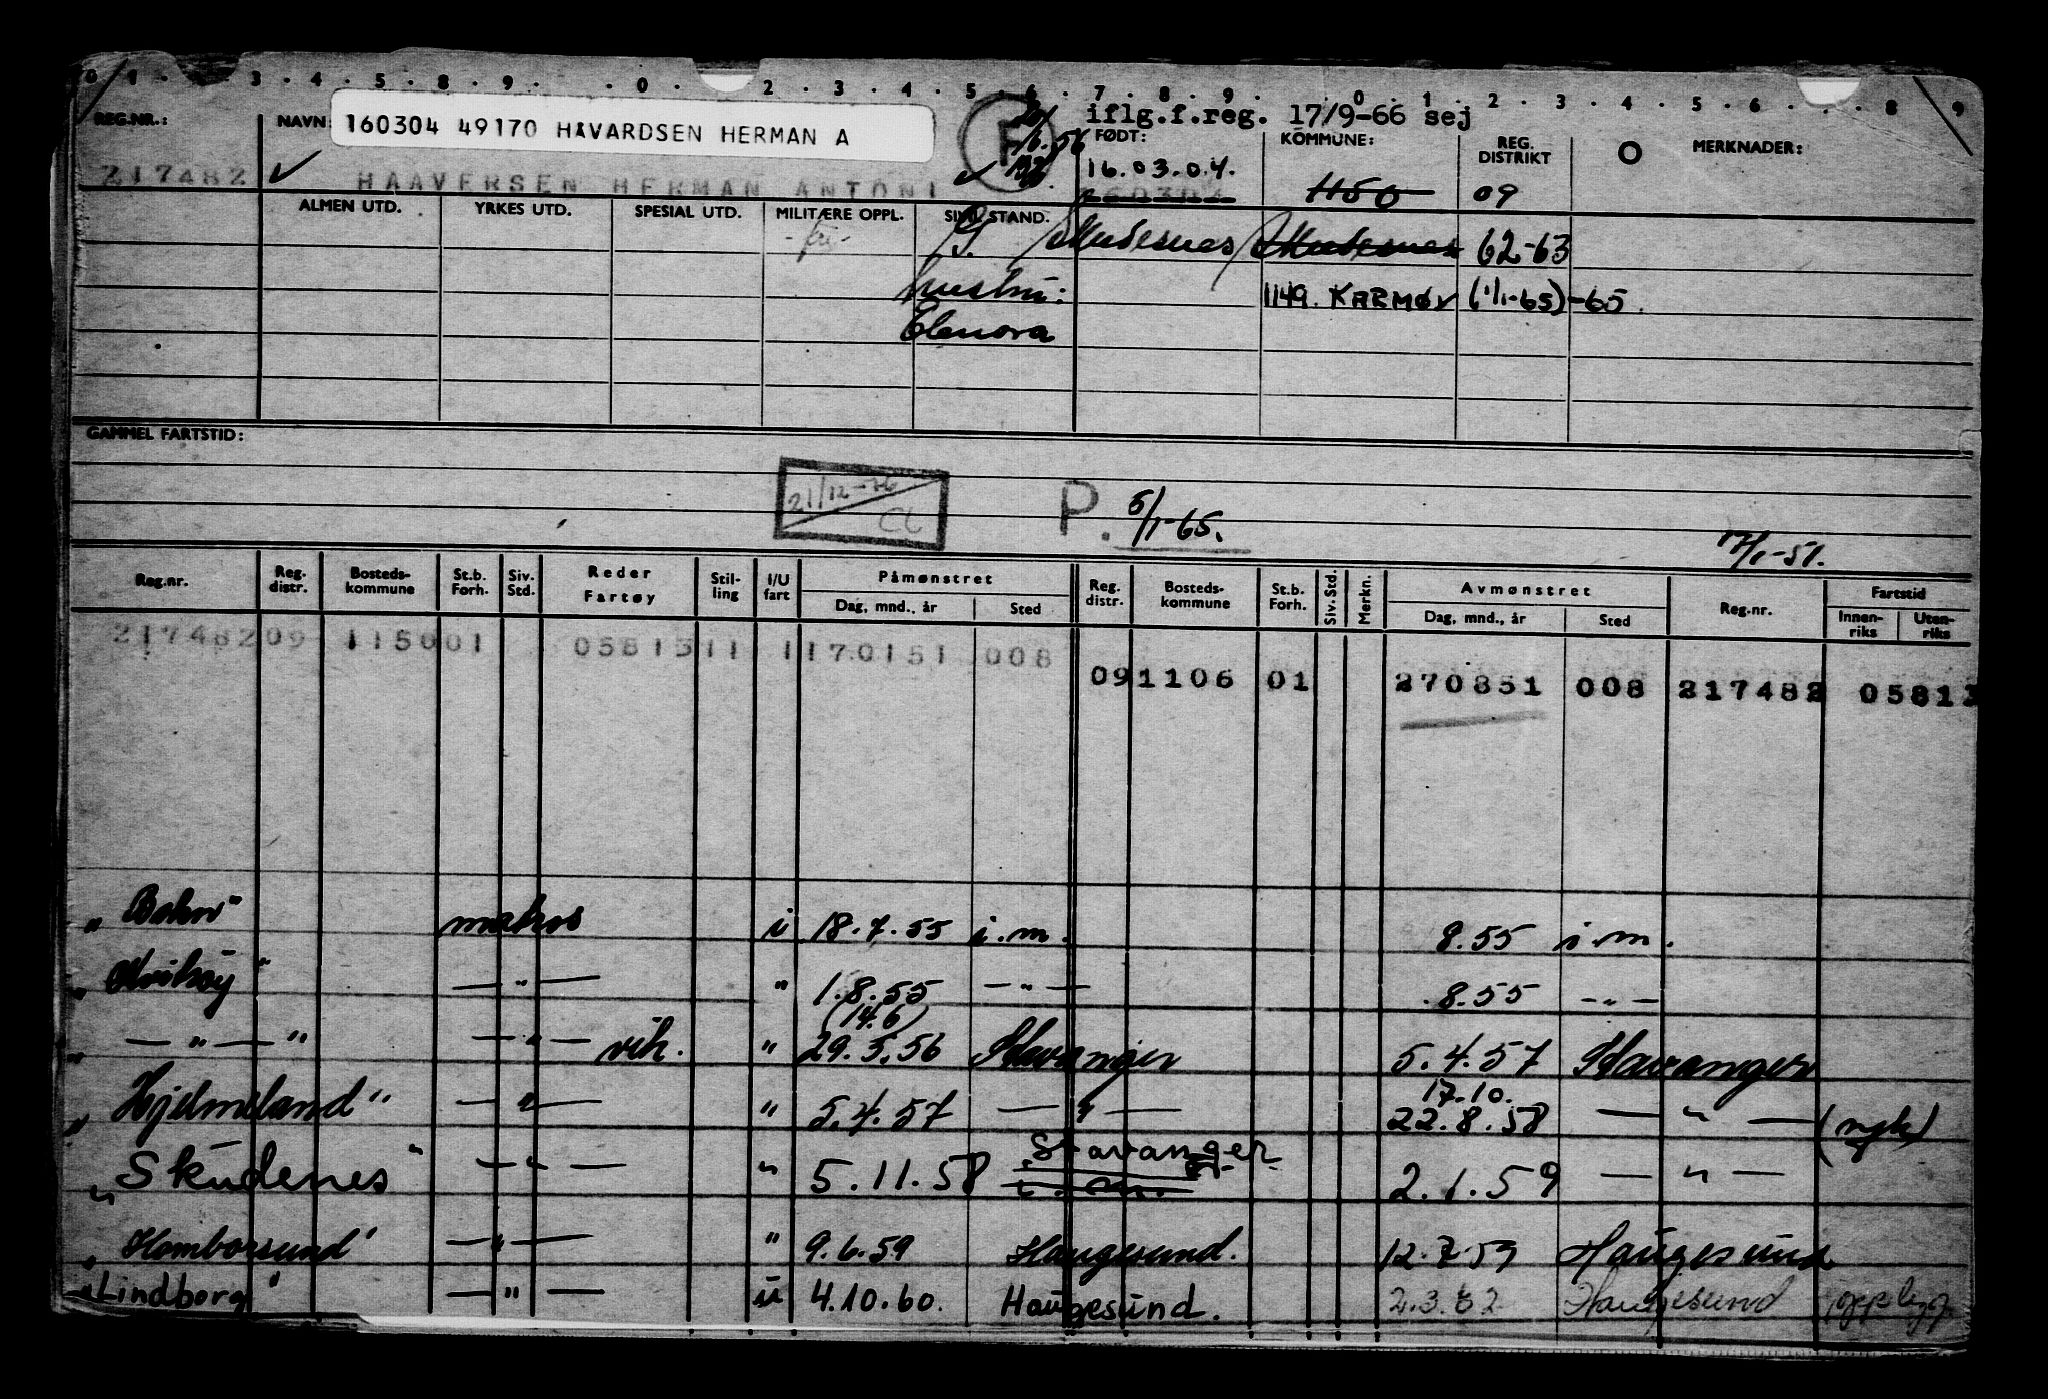 0 1 . . . 3 . 4 . 5 . 8 . 9 . . 0 . 2 . 3 . 4 . 5 . 6 . 7 . 8 . 9 . . 0 . 1 . 2 . 3 . 4 . 5 . 6 . . 8 . 9
iflg.f.reg. 17/9-66 sej
REG.NR.: NAVN: 160304 49170 HAVARDSEN HERMAN A F FØDT: KOMMUNE: REG. DISTRIKT O MERKNADER:
217482 HAAVERSEN HERMAN ANTONI 16.03.04. 1150 09
ALMEN UTD. YRKES UTD. SPESIAL UTD. MILITÆRE OPPL. SIVIL STAND.
G. Skudesnes Skudesnes 62-63
hustru: 1149. KARMØY (1/1-65)-65.
Elenora
GAMMEL FARTSTID:
21/12-76 CC
P. 5/1-65.
17/1-51.
Reg.nr. Reg. distr. Bosteds-kommune St.b. Forh. Siv. Std. Reder Fartøy Stil-ling I/U fart Påmønstret Dag, mnd., år Sted Reg. distr. Bosteds-kommune St.b. Forh. Siv. Std. Merkn. Avmønstret Dag, mnd., år Sted Reg.nr. Fartstid Innen-riks Uten-riks
217482 09 1150 01 05813 11 1 170151 008
09 1106 01 270851 008 217482 05813
"Bokn" matros i 18.7.55 i.m. 8.55 i.m.
"Kvitsøy" — " — " 1.8.55 — " — .8.55 — " —
(14.6)
" — " — " — " — vik. " 29.5.56 Stavanger 5.4.57 Stavanger
17.10.
"Hjelmeland" — " — " 5.4.57 — " — 22.8.58 — " — (mgk)
"Skudenes" — " — " 5.11.58 Stavanger i.m. 2.1.59 — " —
"Homborsund" — " — " 9.6.59 Haugesund. 12.7.59 Haugesund
"Lindborg" — " — u 4.10.60. Haugesund. 2.3.62 Haugesund